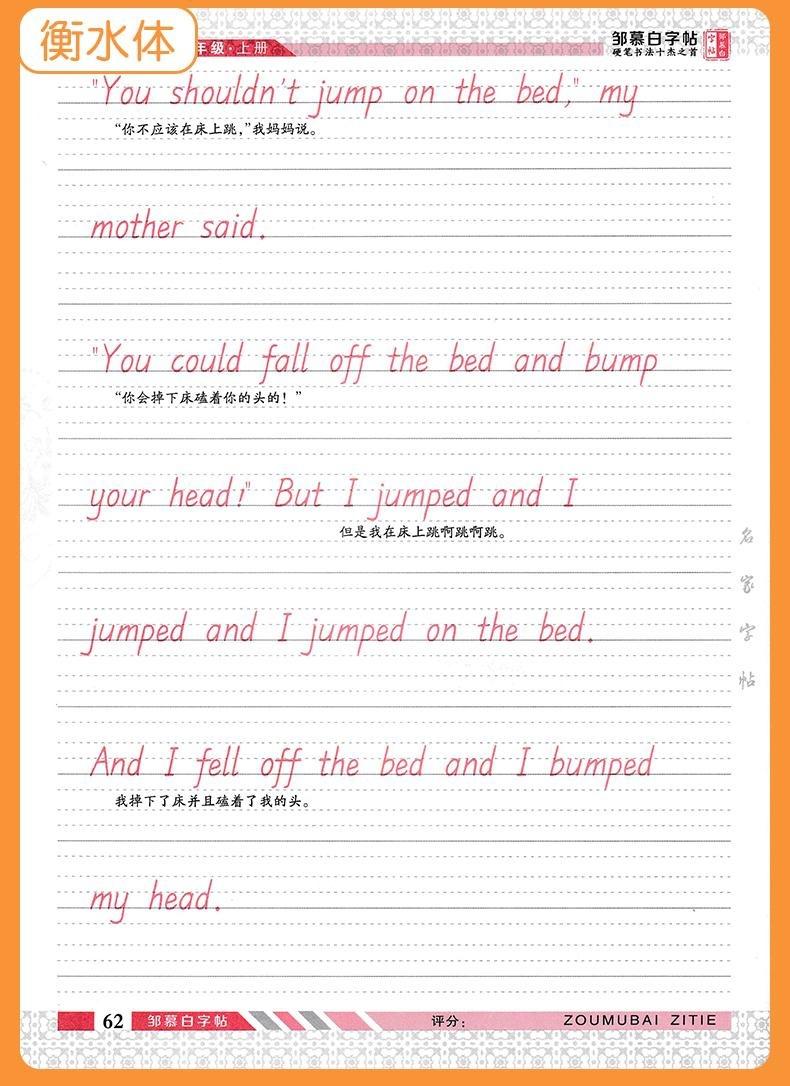 衡水体
年级·上册
邹慕白字帖
硬笔书法十杰之首
"You shouldn't jump on the bed," my
“你不应该在床上跳,”我妈妈说。
mother said.
"You could fall off the bed and bump
“你会掉下床磕着你的头的！”
your head!" But I jumped and I
但是我在床上跳啊跳啊跳。
jumped and I jumped on the bed.
And I fell off the bed and I bumped
我掉下了床并且磕着了我的头。
my head.
名家字帖
62 邹慕白字帖 评分： ZOUMUBAI ZITIE